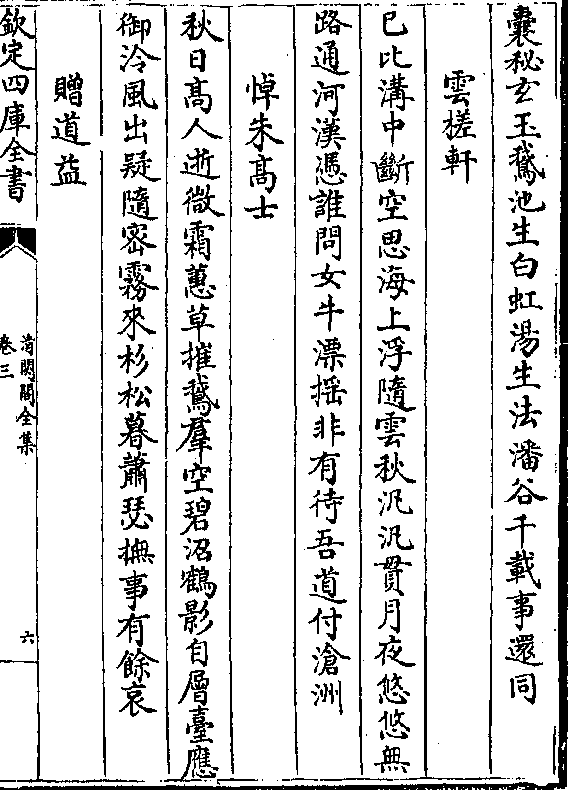 囊秘玄玉鵞池生白虹湯生法潘谷千載事還同
雲槎軒
已比溝中斷空思海上浮隨雲秋汎汎貫月夜悠悠無
路通河漢憑誰問女牛漂揺非有待吾道付滄洲
悼朱髙士
秋日髙人逝微霜蕙草摧鵞羣空碧沼鶴影自層臺應
御泠風出疑隨宻霧來杉松暮蕭瑟撫事有餘哀
贈道益
欽定四庫全書
清閟閣全集
卷三
六